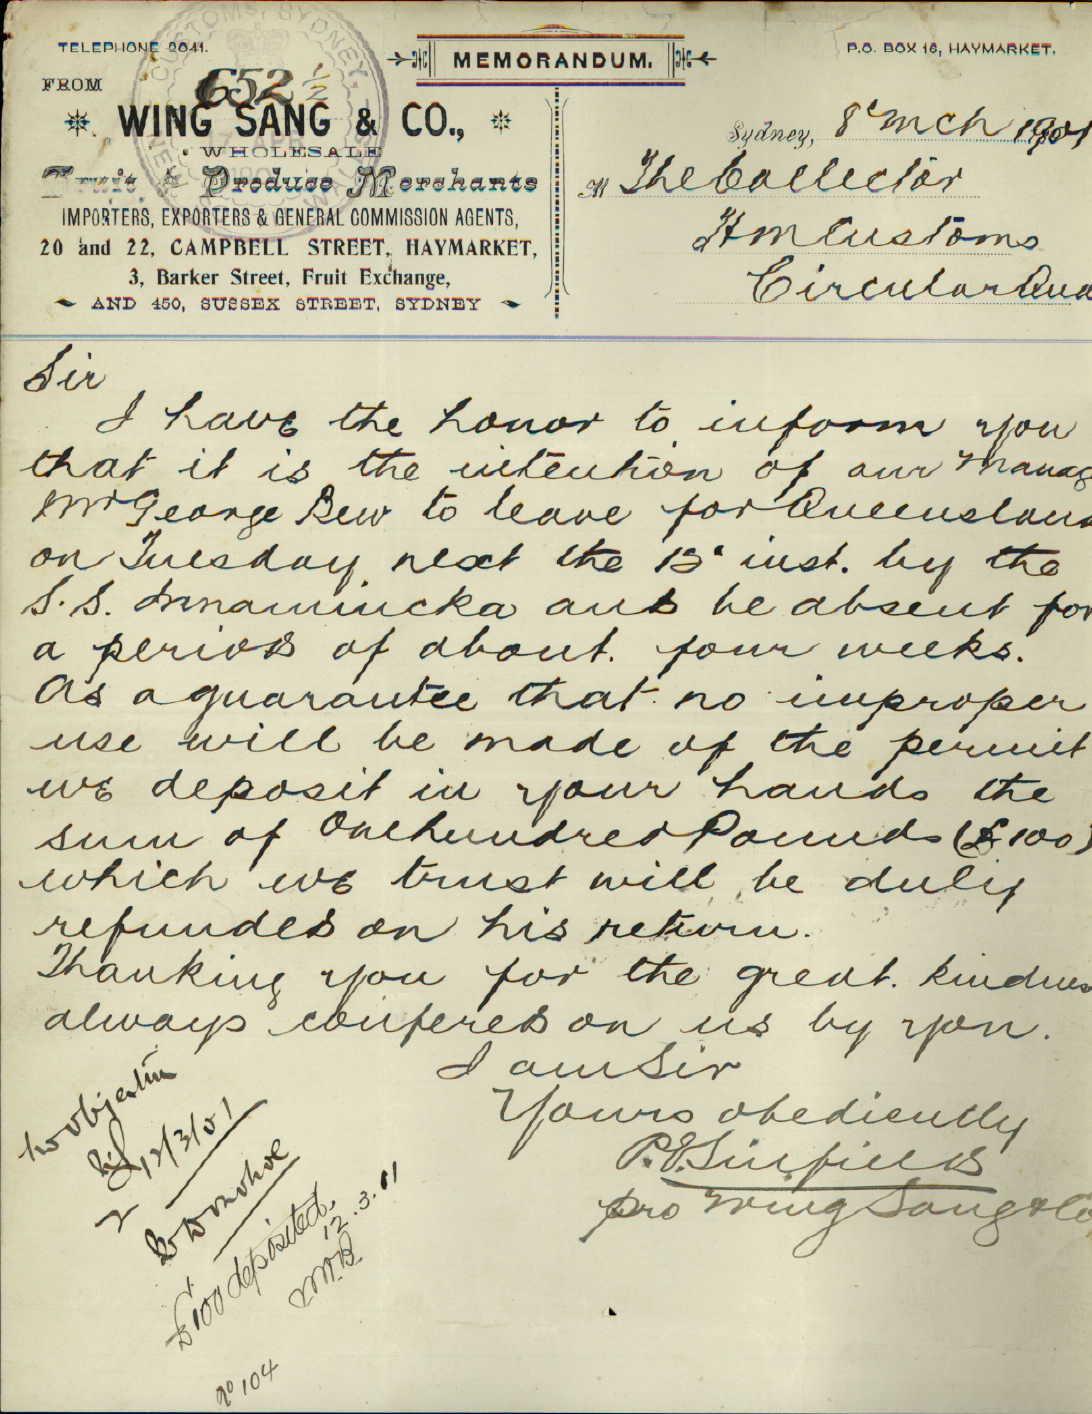 TELEPHONE 2041.
MEMORANDUM.
P.O. BOX 16, HAYMARKET.
CUSTOMS, SYDNEY,
652 1/2
FROM
WING SANG & CO.,
WHOLESALE
Fruit & Produce Merchants
IMPORTERS, EXPORTERS & GENERAL COMMISSION AGENTS,
20 and 22, CAMPBELL STREET, HAYMARKET,
3, Barker Street, Fruit Exchange,
AND 450, SUSSEX STREET, SYDNEY
Sydney, 8th Mch 1901
M The Collector
H M Customs
Circular Qua
Sir
I have the honor to inform you
that it is the intention of our Manag
Mr George Bew to leave for Queensland
on Tuesday next the 12th inst. by the
S.S. Innamincka and be absent for
a period of about four weeks.
As a guarantee that no improper
use will be made of the permit
we deposit in your hands the
sum of One hundred Pounds (£100)
which we trust will be duly
refunded on his return.
Thanking you for the great kindnes
always confered on us by you.
I am Sir
Yours obediently
P.E. Sinfield
pro Wing Sang & Co
No objection
12/3/01
Donohoe
£100 deposited.
12.3.01
No 104